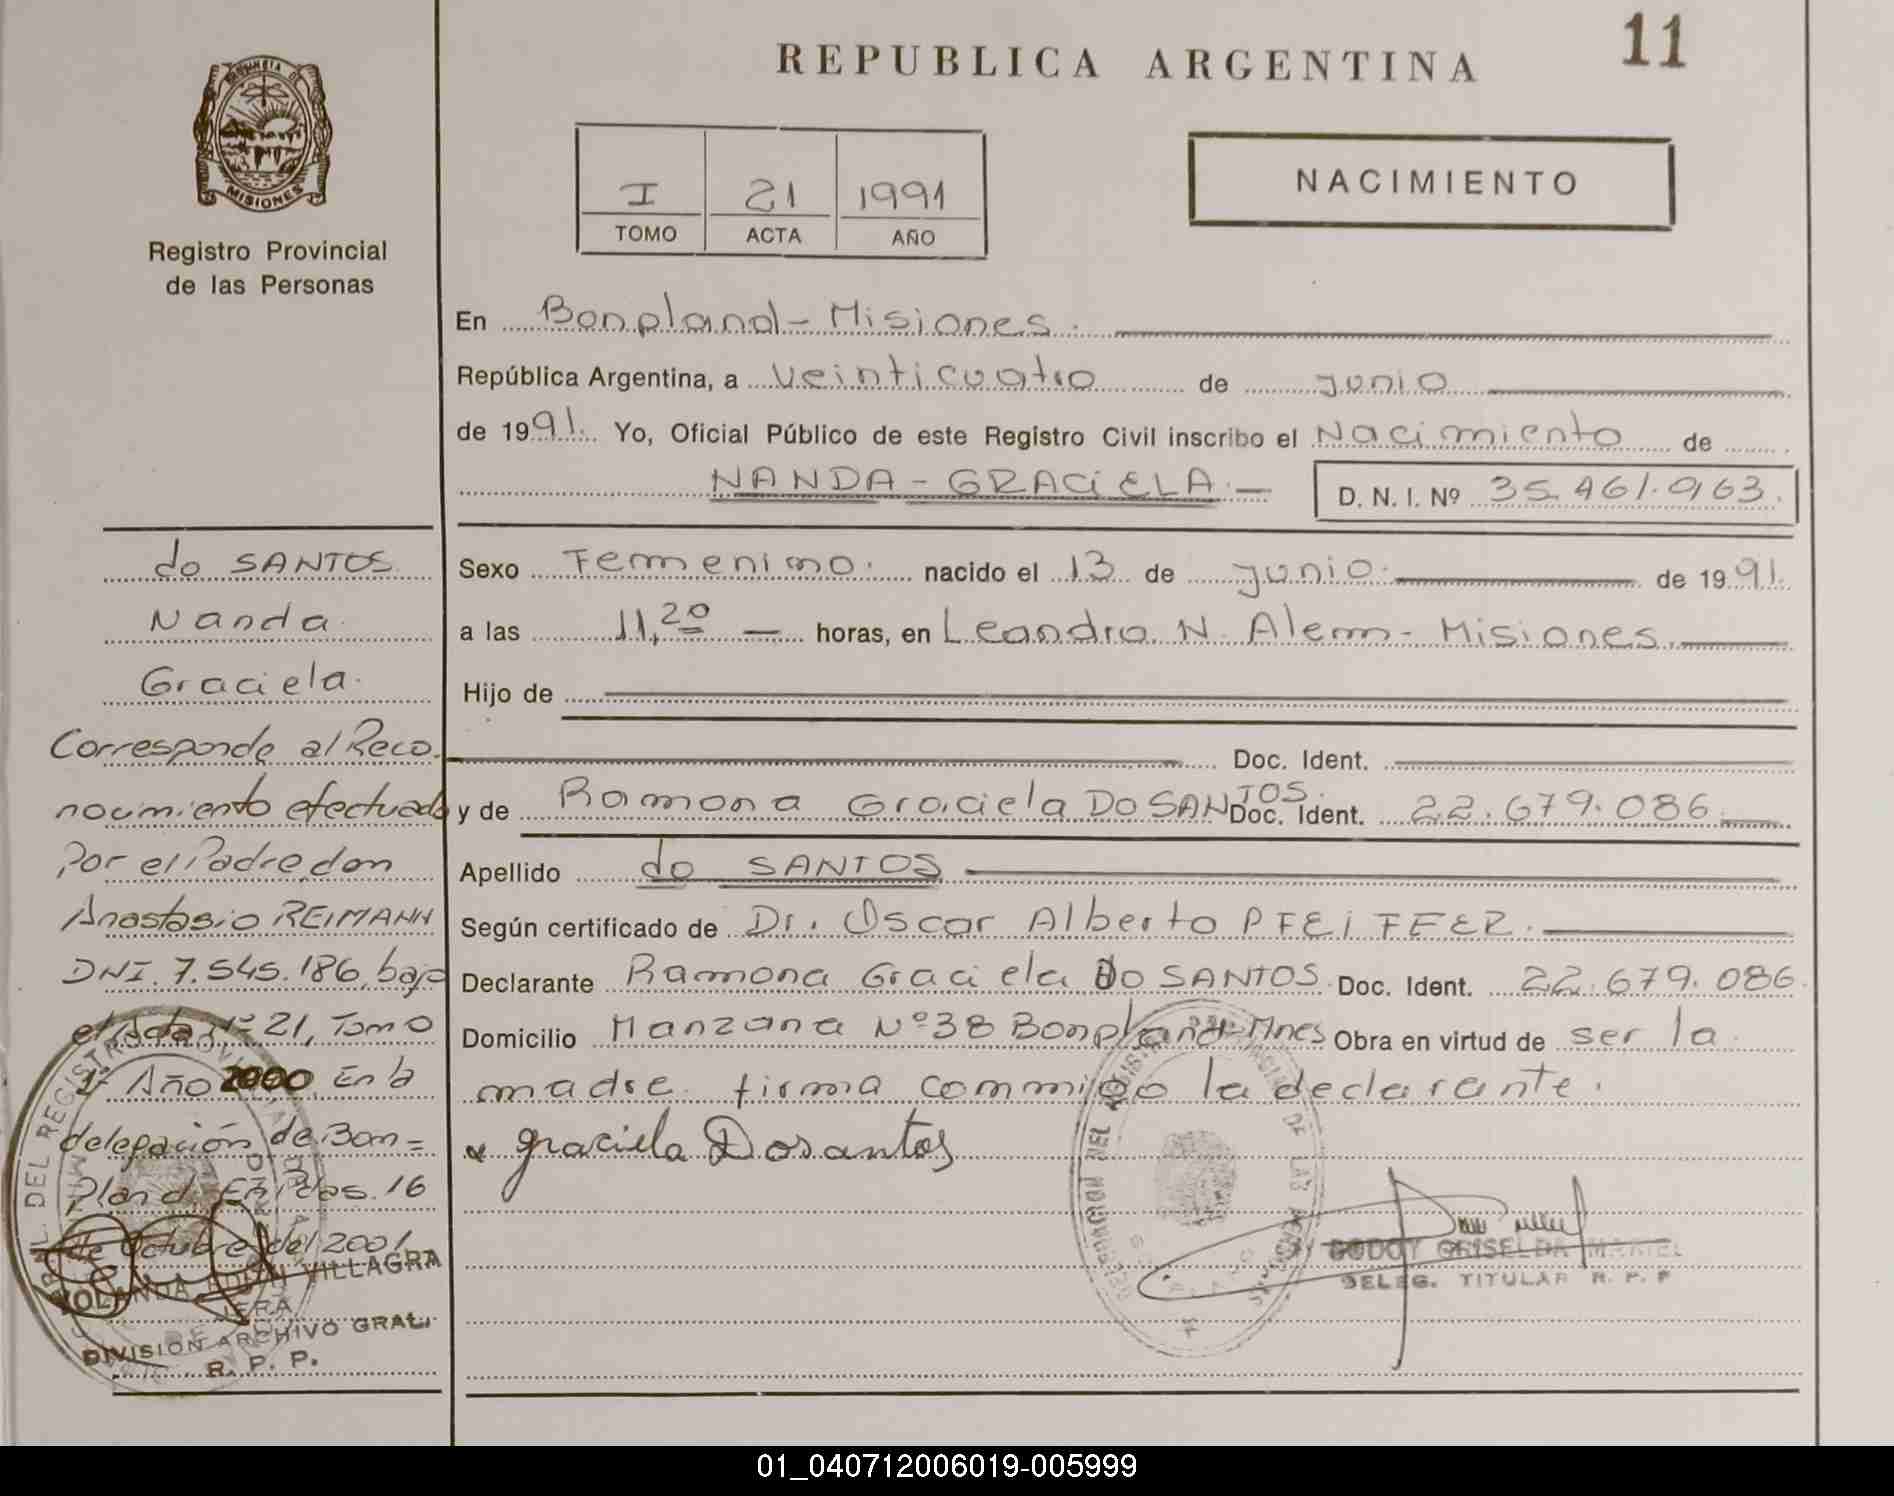 11
REPUBLICA ARGENTINA
PROVINCIA DE
MISIONES
Registro Provincial
de las Personas
I 21 1991
TOMO ACTA AÑO
NACIMIENTO
En Bonpland - Misiones.
República Argentina, a veinticuatro de junio
de 1991. Yo, Oficial Público de este Registro Civil inscribo el Nacimiento de
NANDA - GRACIELA.-
D. N. I. Nº 35.461.963.
Sexo Femenino. nacido el 13 de junio. de 1991.
a las 11,20 — horas, en Leandro N. Alem - Misiones.
Hijo de
Doc. Ident.
y de Ramona Graciela Do SANTOS. Doc. Ident. 22.679.086.
Apellido do SANTOS
Según certificado de Dr. Oscar Alberto PFEiFFER.
Declarante Ramona Graciela Do SANTOS. Doc. Ident. 22.679.086.
Domicilio Manzana Nº 38 Bonpland-Mnes Obra en virtud de ser la
madre. firma conmigo la declarante.
x graciela Dosantos
GODOY GRISELDA MARIEL
DELEG. TITULAR R. P. P
do SANTOS
Nanda
Graciela.
Corresponde al Reco.
nocimiento efectuado
Por el Padre don
Anastasio REIMANN
DNI. 7.545.186, bajo
el Acta nº 21, Tomo
1º Año 2000, En la
delegación de Bon=
pland. En Pdas. 16
de Octubre del 2001
YOLANDA VILLAGRA
JEFA
DIVISION ARCHIVO GRAL.
R. P. P.
01_040712006019-005999